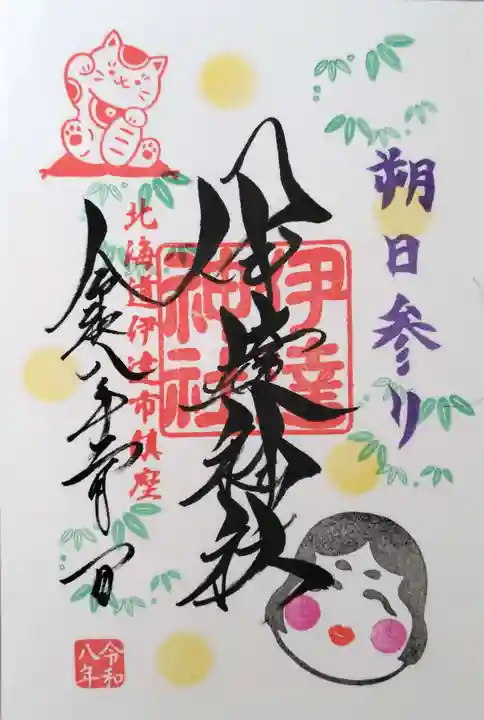 朔日参り
伊達神社
伊達神社
北海道伊達市鎮座
令和八年一月一日
令和八年